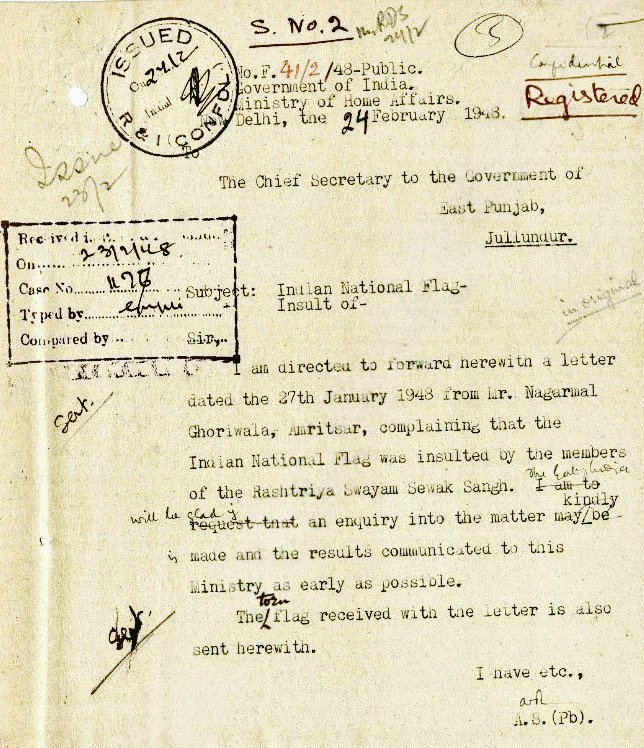 S. No. 2
ISSUED
On 24/2
R & I (CONFDL)
Confidential
Registered
No.F. 41/2/48-Public.
Government of India.
Ministry of Home Affairs.
New Delhi, the 24 February 1948.
Issue
23/2
The Chief Secretary to the Government of
East Punjab,
Jullundur.
Received in
On 23/2/48
Case No. 
Typed by
Compared by
Subject: Indian National Flag-
Insult of-
in original
Sir,
I am directed to forward herewith a letter
dated the 27th January 1948 from Mr. Nagarmal
Ghoriwala, Amritsar, complaining that the
Indian National Flag was insulted by the members
of the Rashtriya Swayam Sewak Sangh. I am to
kindly
will be glad if
request that an enquiry into the matter may/be
is made and the results communicated to this
Ministry as early as possible.
torn
The flag received with the letter is also
sent herewith.
I have etc.,
A.S.(Pb).